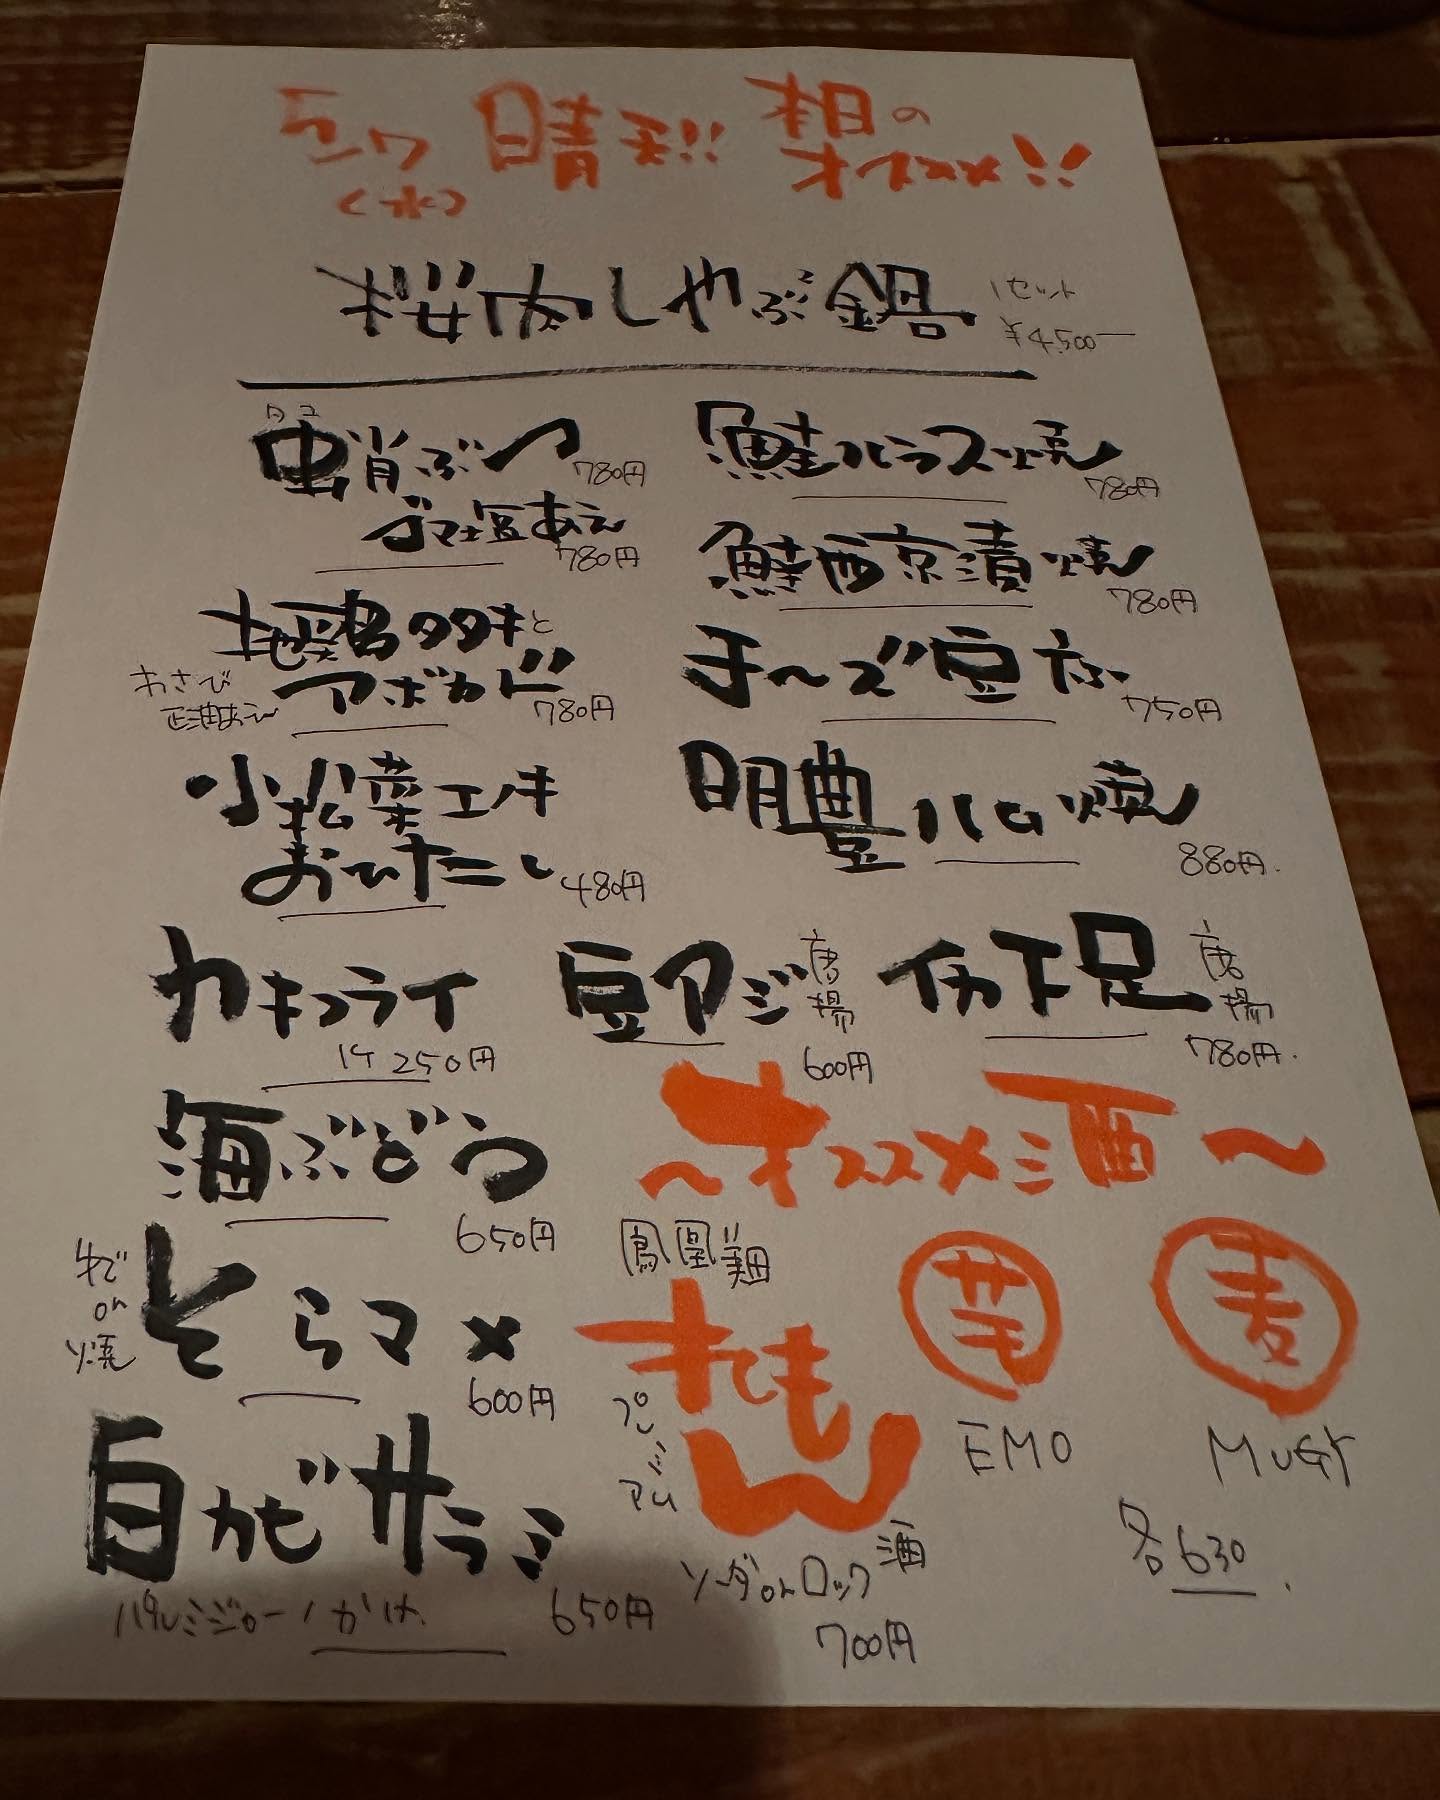 晴天!! 本日の
(水) オススメ!!
桜肉しゃぶ鍋 1セット
¥4,500ー
タコ
蛸ぶつ 780円
ゴマ塩あえ 780円
地鶏タタキと
アボカド 780円
わさび
正油あえ
小松菜エノキ
おひたし 480円
鮭ハラス焼 780円
鮭西京漬焼 780円
チーズ豆腐 750円
明豊ハム焼 880円.
カキフライ
1ケ 250円
豆アジ 唐揚
600円
イカ下足 唐揚
780円.
海ぶどう
650円
ゆで
or
焼
そらマメ
600円
白カビサラミ
パルミジャーノかけ 650円
〜オススメ酒〜
鳳凰美田
れもん 酒
プレミアム
ソーダorロック
700円
芋
EMO
麦
MUGI
各630.